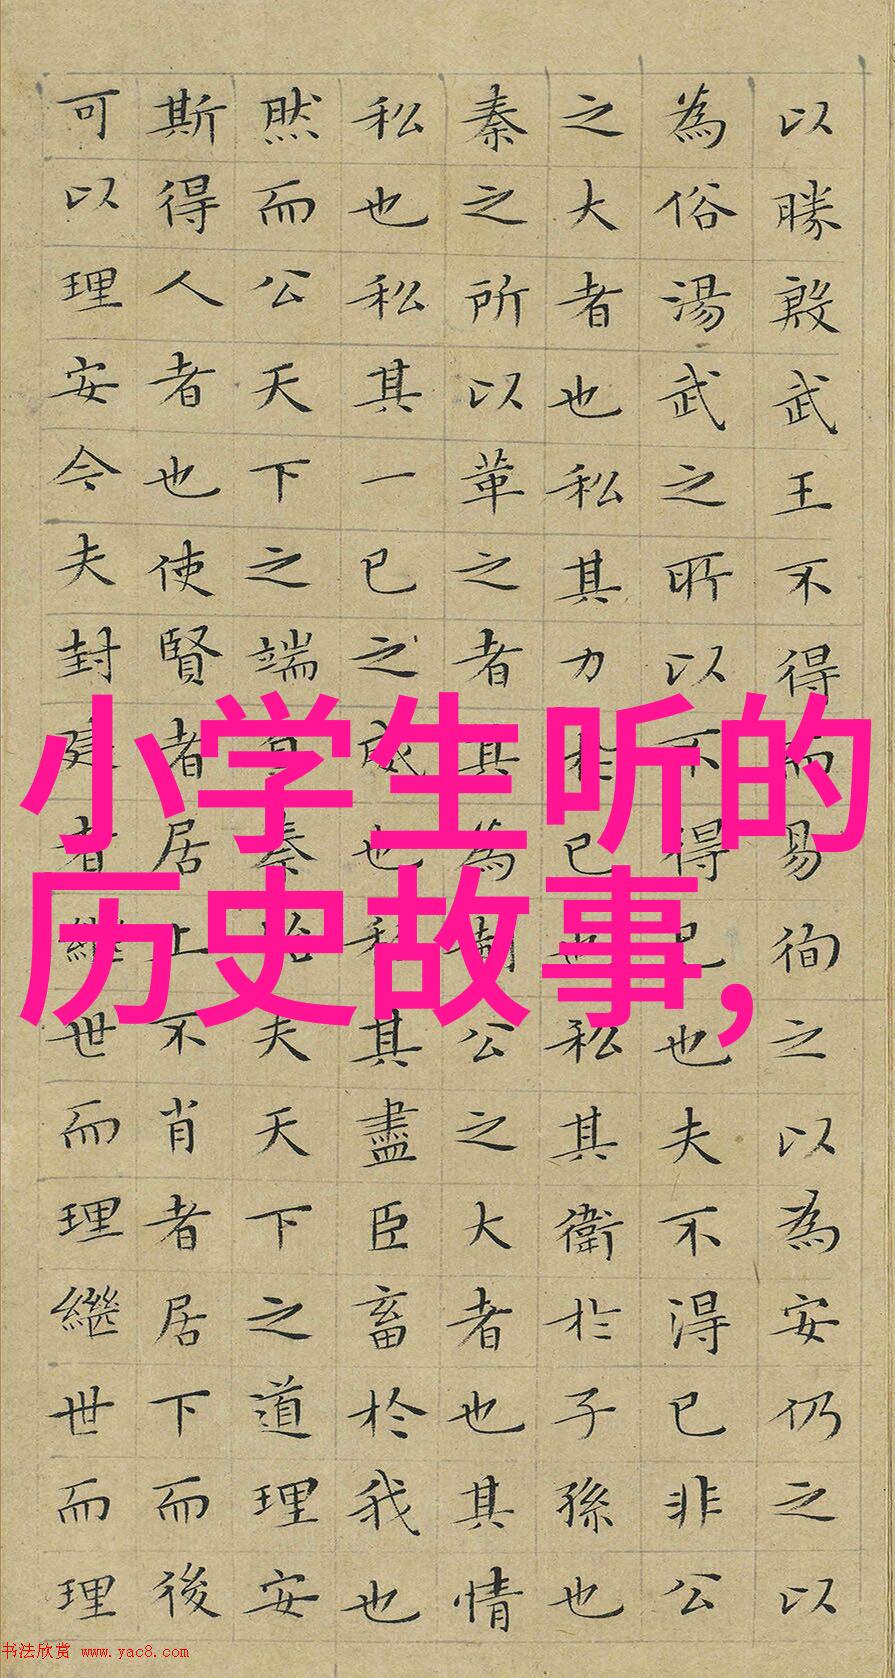 以勝殷武王不得而易徇之以為安仍之以
為俗湯武之所以不得已也夫不得已非公
之大者也私其力於已也私其衛於子孫也
秦之所以革之者其為制公之大者也其情
私也私其一已之威也私其盡臣畜於我也
然而公天下之端自秦始夫天下之道理安
斯得人者也使賢者居上不肖者居下而後
可以理安今夫封建者繼世而理繼世而理
小学生听的
历史故事,
书法欣赏 www.yac8.com